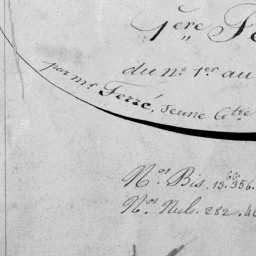 1ère Fe
du no. 1er au
par mr Ferré, Jeune Cte
Nos Bis. 13.
Nos Nuls. 282.